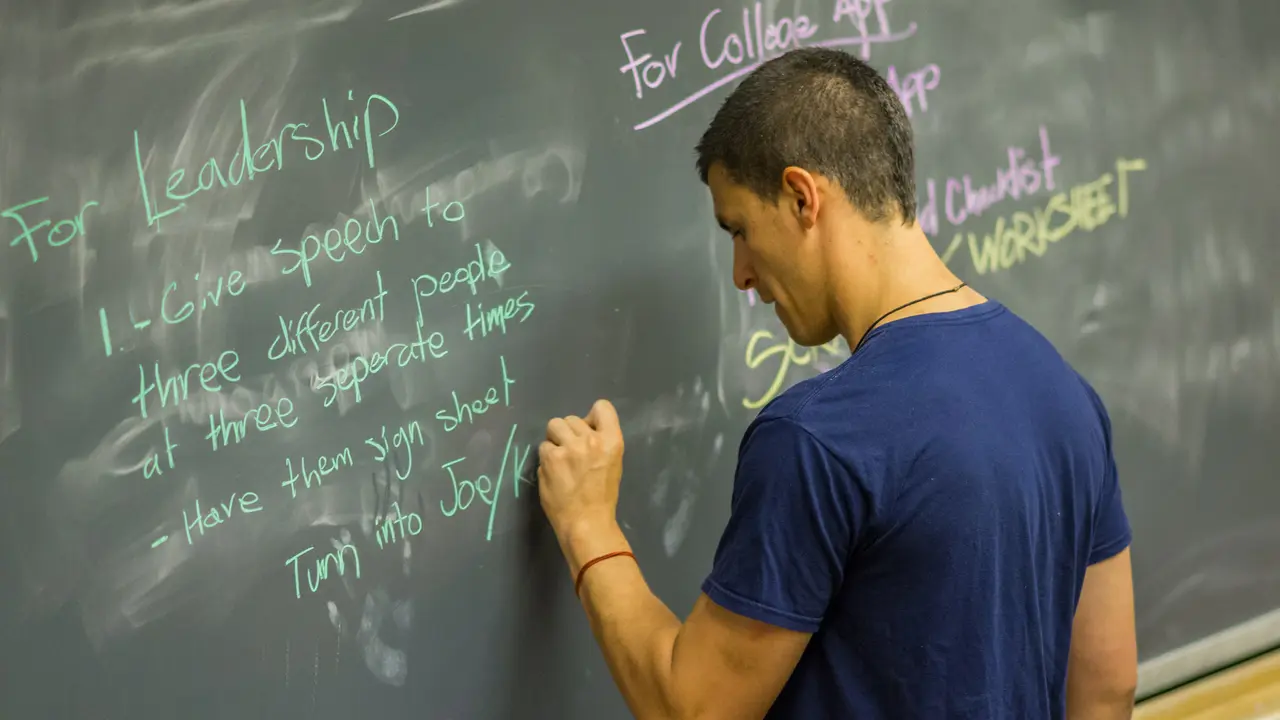 For Leadership
1.- Give speech to
three different people
at three seperate times
- Have them sign sheet
Turn into Joe/K
For College App
App
Checklist
WORKSHEET